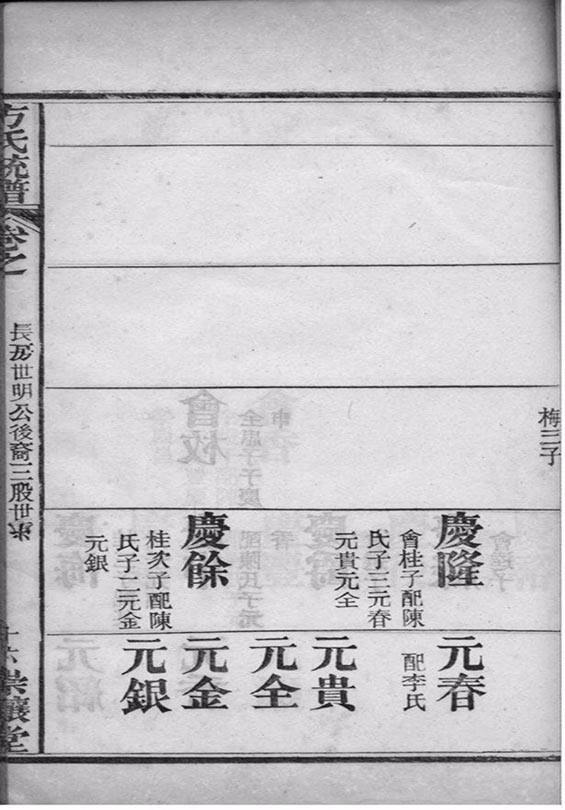 梅三子
慶隆
會桂子配陳
氏子三元春
元貴元全
慶餘
桂次子配陳
氏子二元金
元銀
元春
配李氏
元貴
元全
元金
元銀
方氏統譜
卷之
長房世明公後裔三股世系
十六
堂